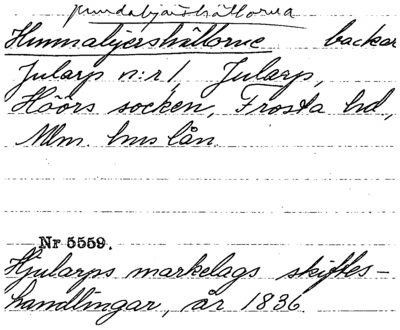 Hundabjärshållorna
Hunnabjershållorne backar
Jularp n:r 1, Jularp,
Höörs socken, Frosta hd,
Mlm. hus län.
Nr 5559.
Hjularps markelags skiftes-
handlingar, år 1836